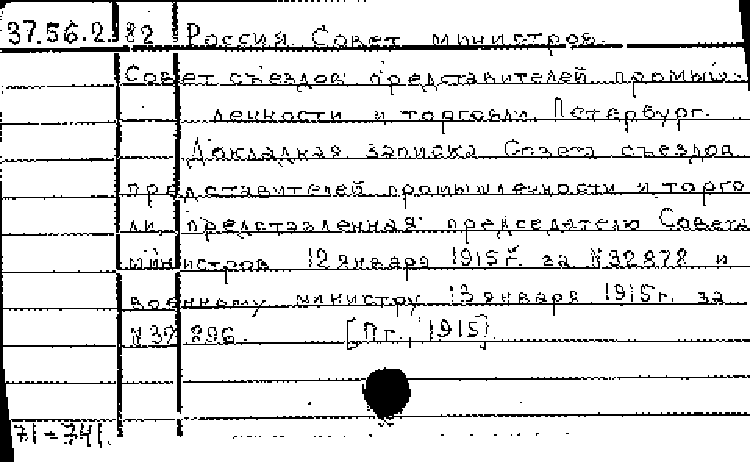 37.56.2.82 Россия. Совет министров.
Совет съездов представителей промыш-
ленности и торговли. Петербург.
Докладная записка Совета съездов
представителей промышленности и торго
ли, представленная председателю Совета
министров 12 января 1915 г. за №32872 и
военному министру 13 января 1915 г. за
№32896. [Пг., 1915]
71-741.